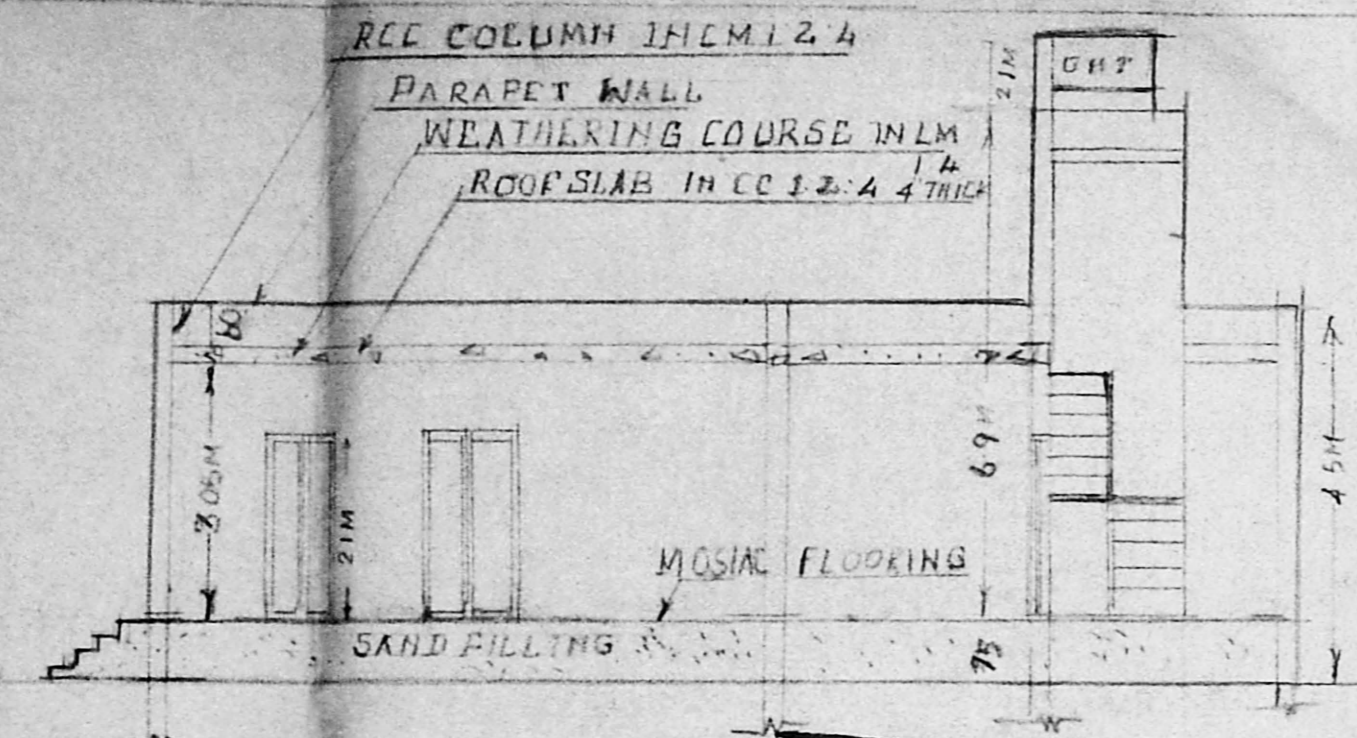 RCC COLUMN IN CM 1 2 4
PARAPET WALL
WEATHERING COURSE IN LM
1 4
ROOF SLAB IN CC 1 2:4 4" THICK
21M
OHT
60
3 05M
21M
6 9M
4 5M
MOSIAC FLOORING
SAND FILLING
75